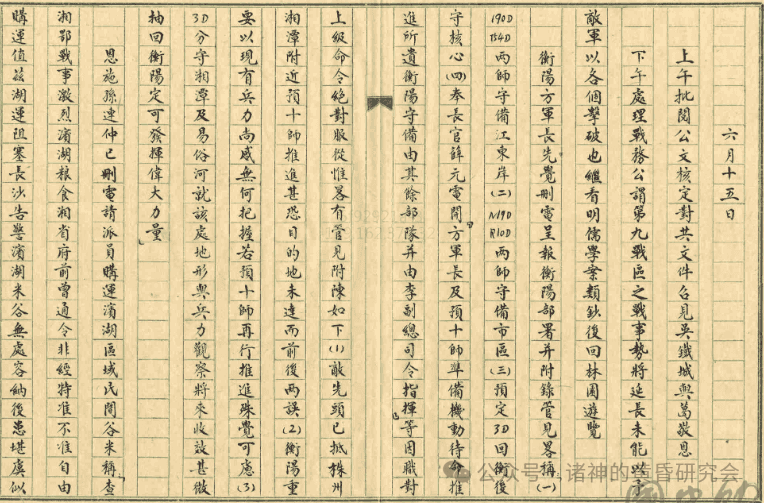 六月十五日
上午批閱公文核定對共文件召見吳鐵城與萬敬恩
下午處理戰務公謂第九戰區之戰事勢將延長未能以言
敵軍以各個擊破也繼看明儒學案類鈔後回林園遊覽
衡陽方軍長先覺刪電呈報衡陽部署并附錄管見畧稱(一)
190D 54D兩師守備江東岸(二)N19D R10D兩師守備市區(三)預定3D回衡後
守核心(四)奉長官薛元電開方軍長及預十師準備機動待命推
進所遺衡陽守備由其餘部隊并由李副總司令指揮等因職對
上級命令絕對服從惟畧有管見附陳如下(1)敵先頭已抵株州
湘潭附近預十師推進甚恐目的地未達而前後兩誤(2)衡陽重
要以現有兵力尚感無何把握若預十師再行推進殊覺可慮(3)
3D分守湘潭及易俗河就該處地形與兵力觀察將來收效甚微
抽回衡陽定可發揮偉大力量
恩施孫連仲已刪電請派員購運濱湖區域民間谷米稱查
湘鄂戰事激烈濱湖粮食湘省府前曾通令非經特准不准自由
購運值茲湖運阻塞長沙告警濱湖米谷無處容納後患堪虞似
公众号·诸神的黄昏研究会